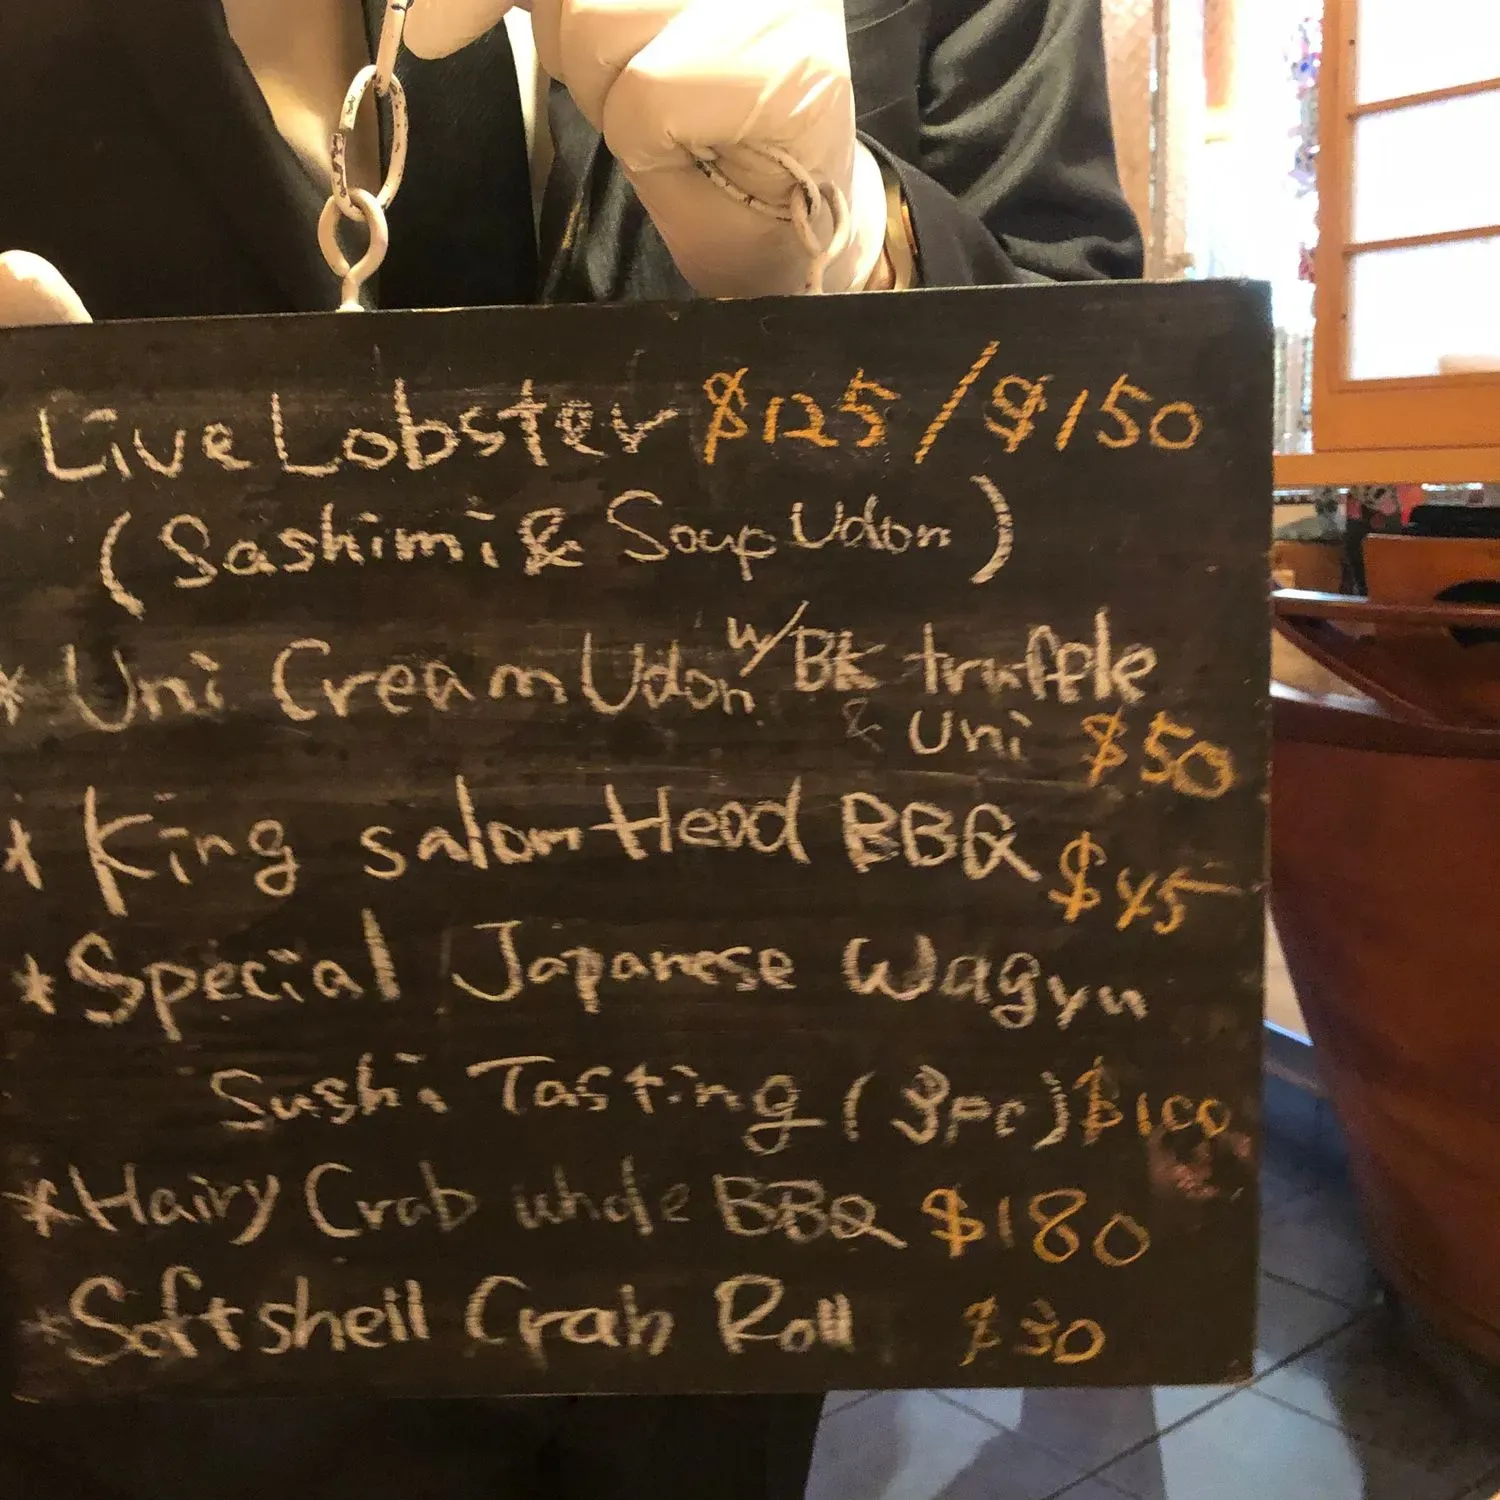 * Live Lobster $125/$150
(Sashimi & Soup Udon)
* Uni Cream Udon w/ Bk truffle
& Uni $50
* King salom Head BBQ $45
* Special Japanese Wagyu
Sushi Tasting (3pc) $100
* Hairy Crab whole BBQ $180
* Soft shell Crab Roll $30